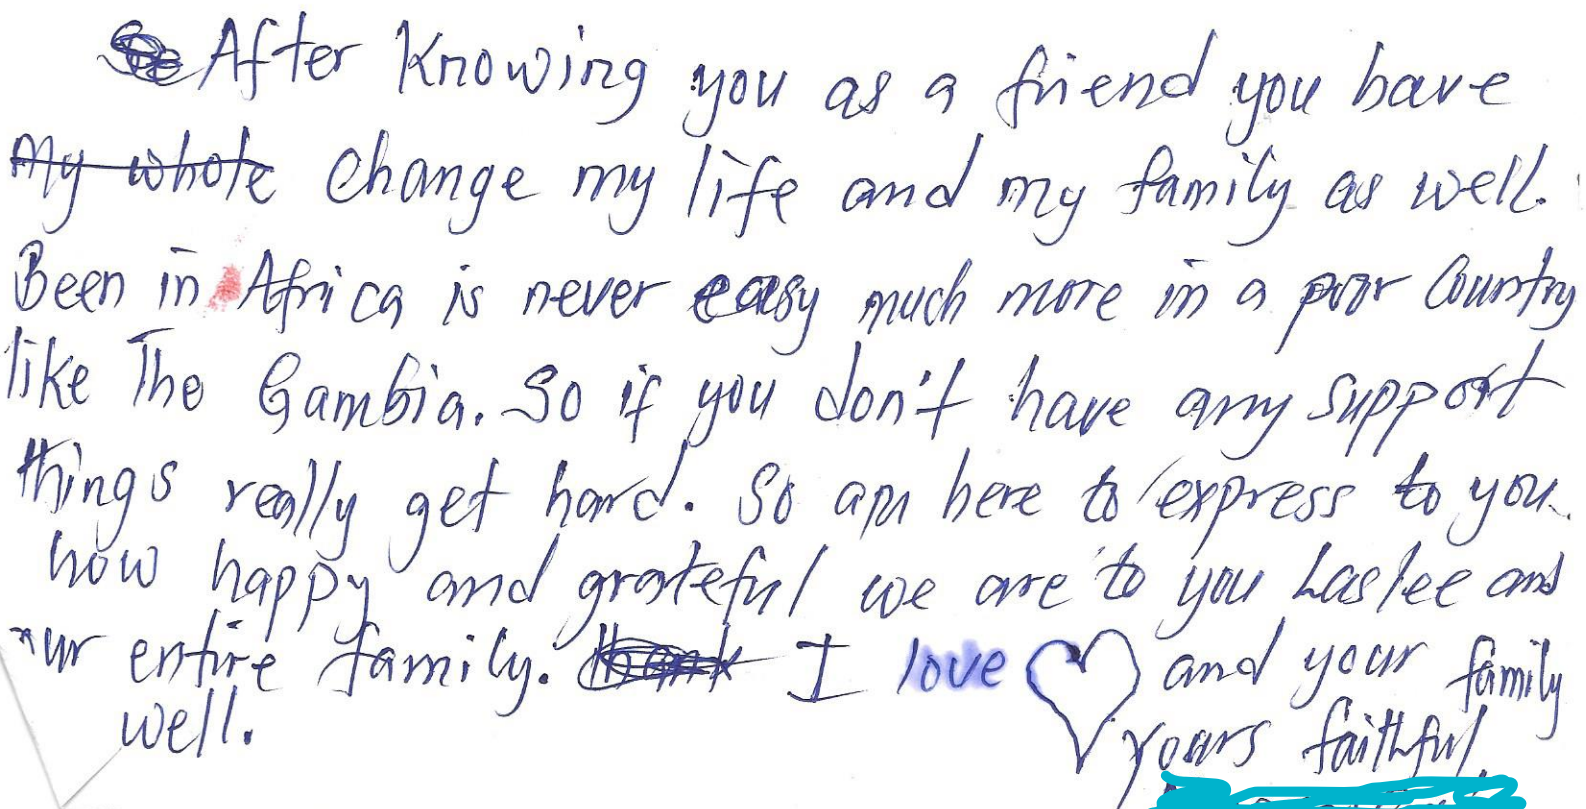 After Knowing you as a friend you have
my whole change my life and my family as well.
Been in Africa is never easy much more in a poor Country
like The Gambia. So if you don't have any support
things really get hard. So am here to express to you
how happy and grateful we are to you Laslee and
ur entire family. thank I love ♡ and your family
well.
yours faithful,